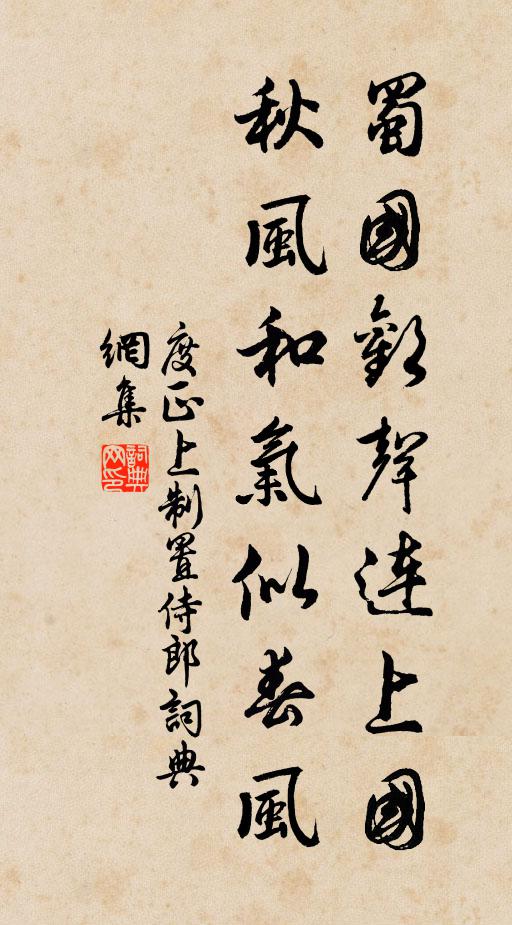 蜀國歡聲連上國
秋風和氣似春風
度正上制置侍郎詞典
網集
詞典网印